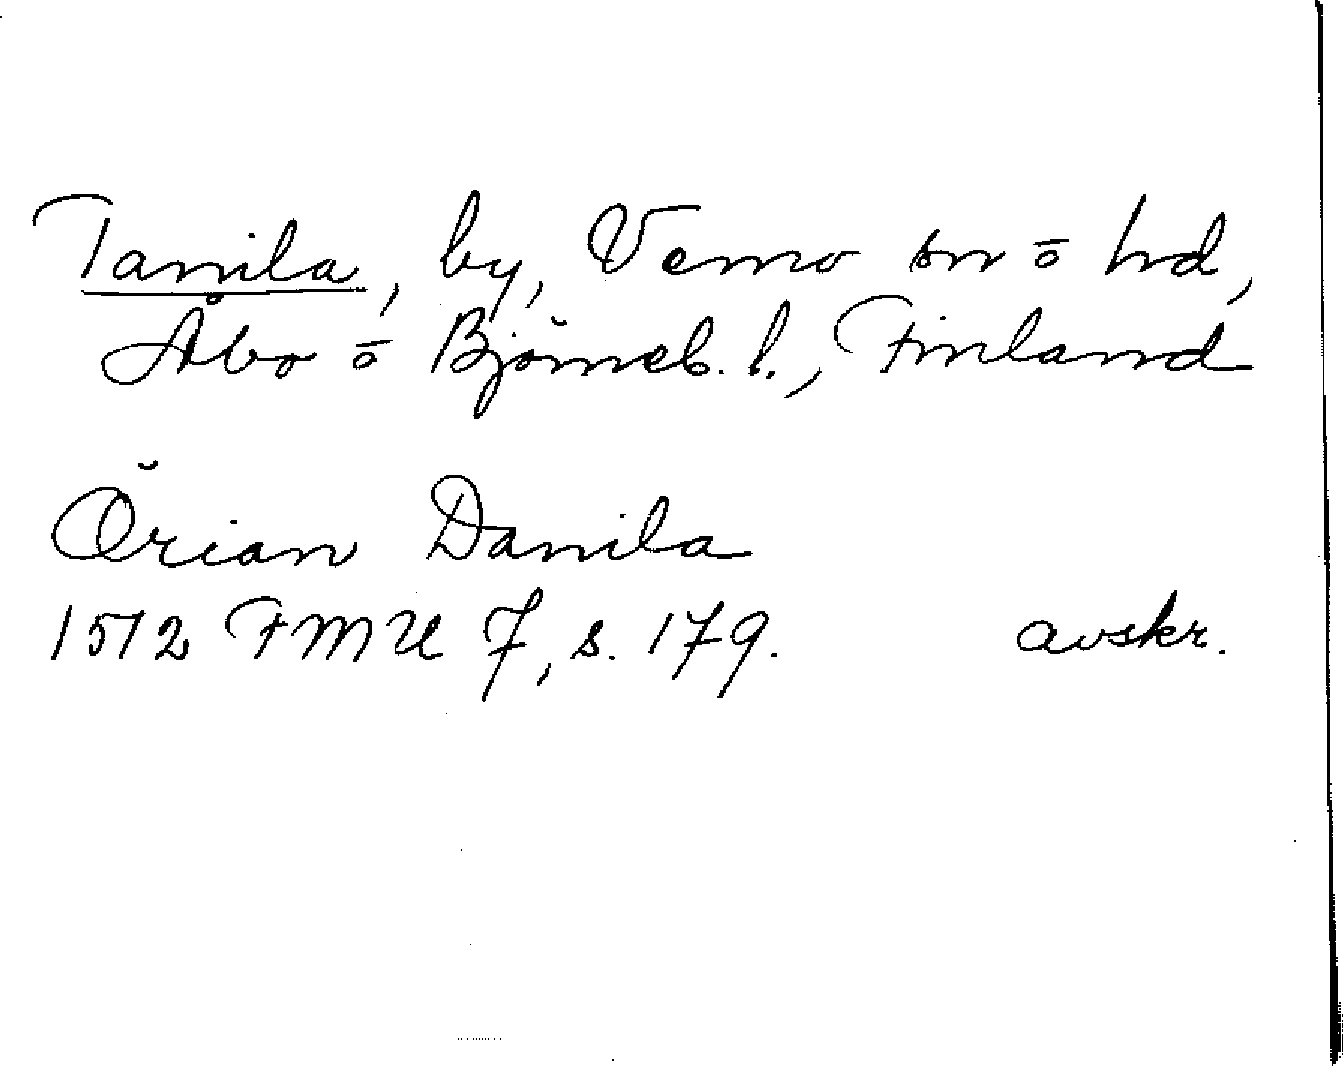 Tanila, by, Vemo sn o hd,
Åbo o Björneb. l., Finland
Örian Danila
1512 FMU 7, s. 179. avskr.